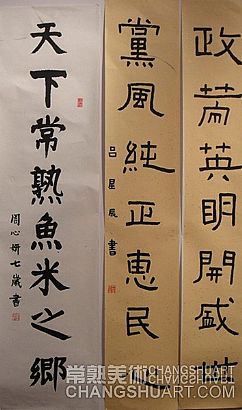 政英明開盛
黨風純正惠民
吕星辰書
天下常熟魚米之鄉
周心妍七歲書
常熟美術 CHANGSHUART
CHANGSHUART.COM